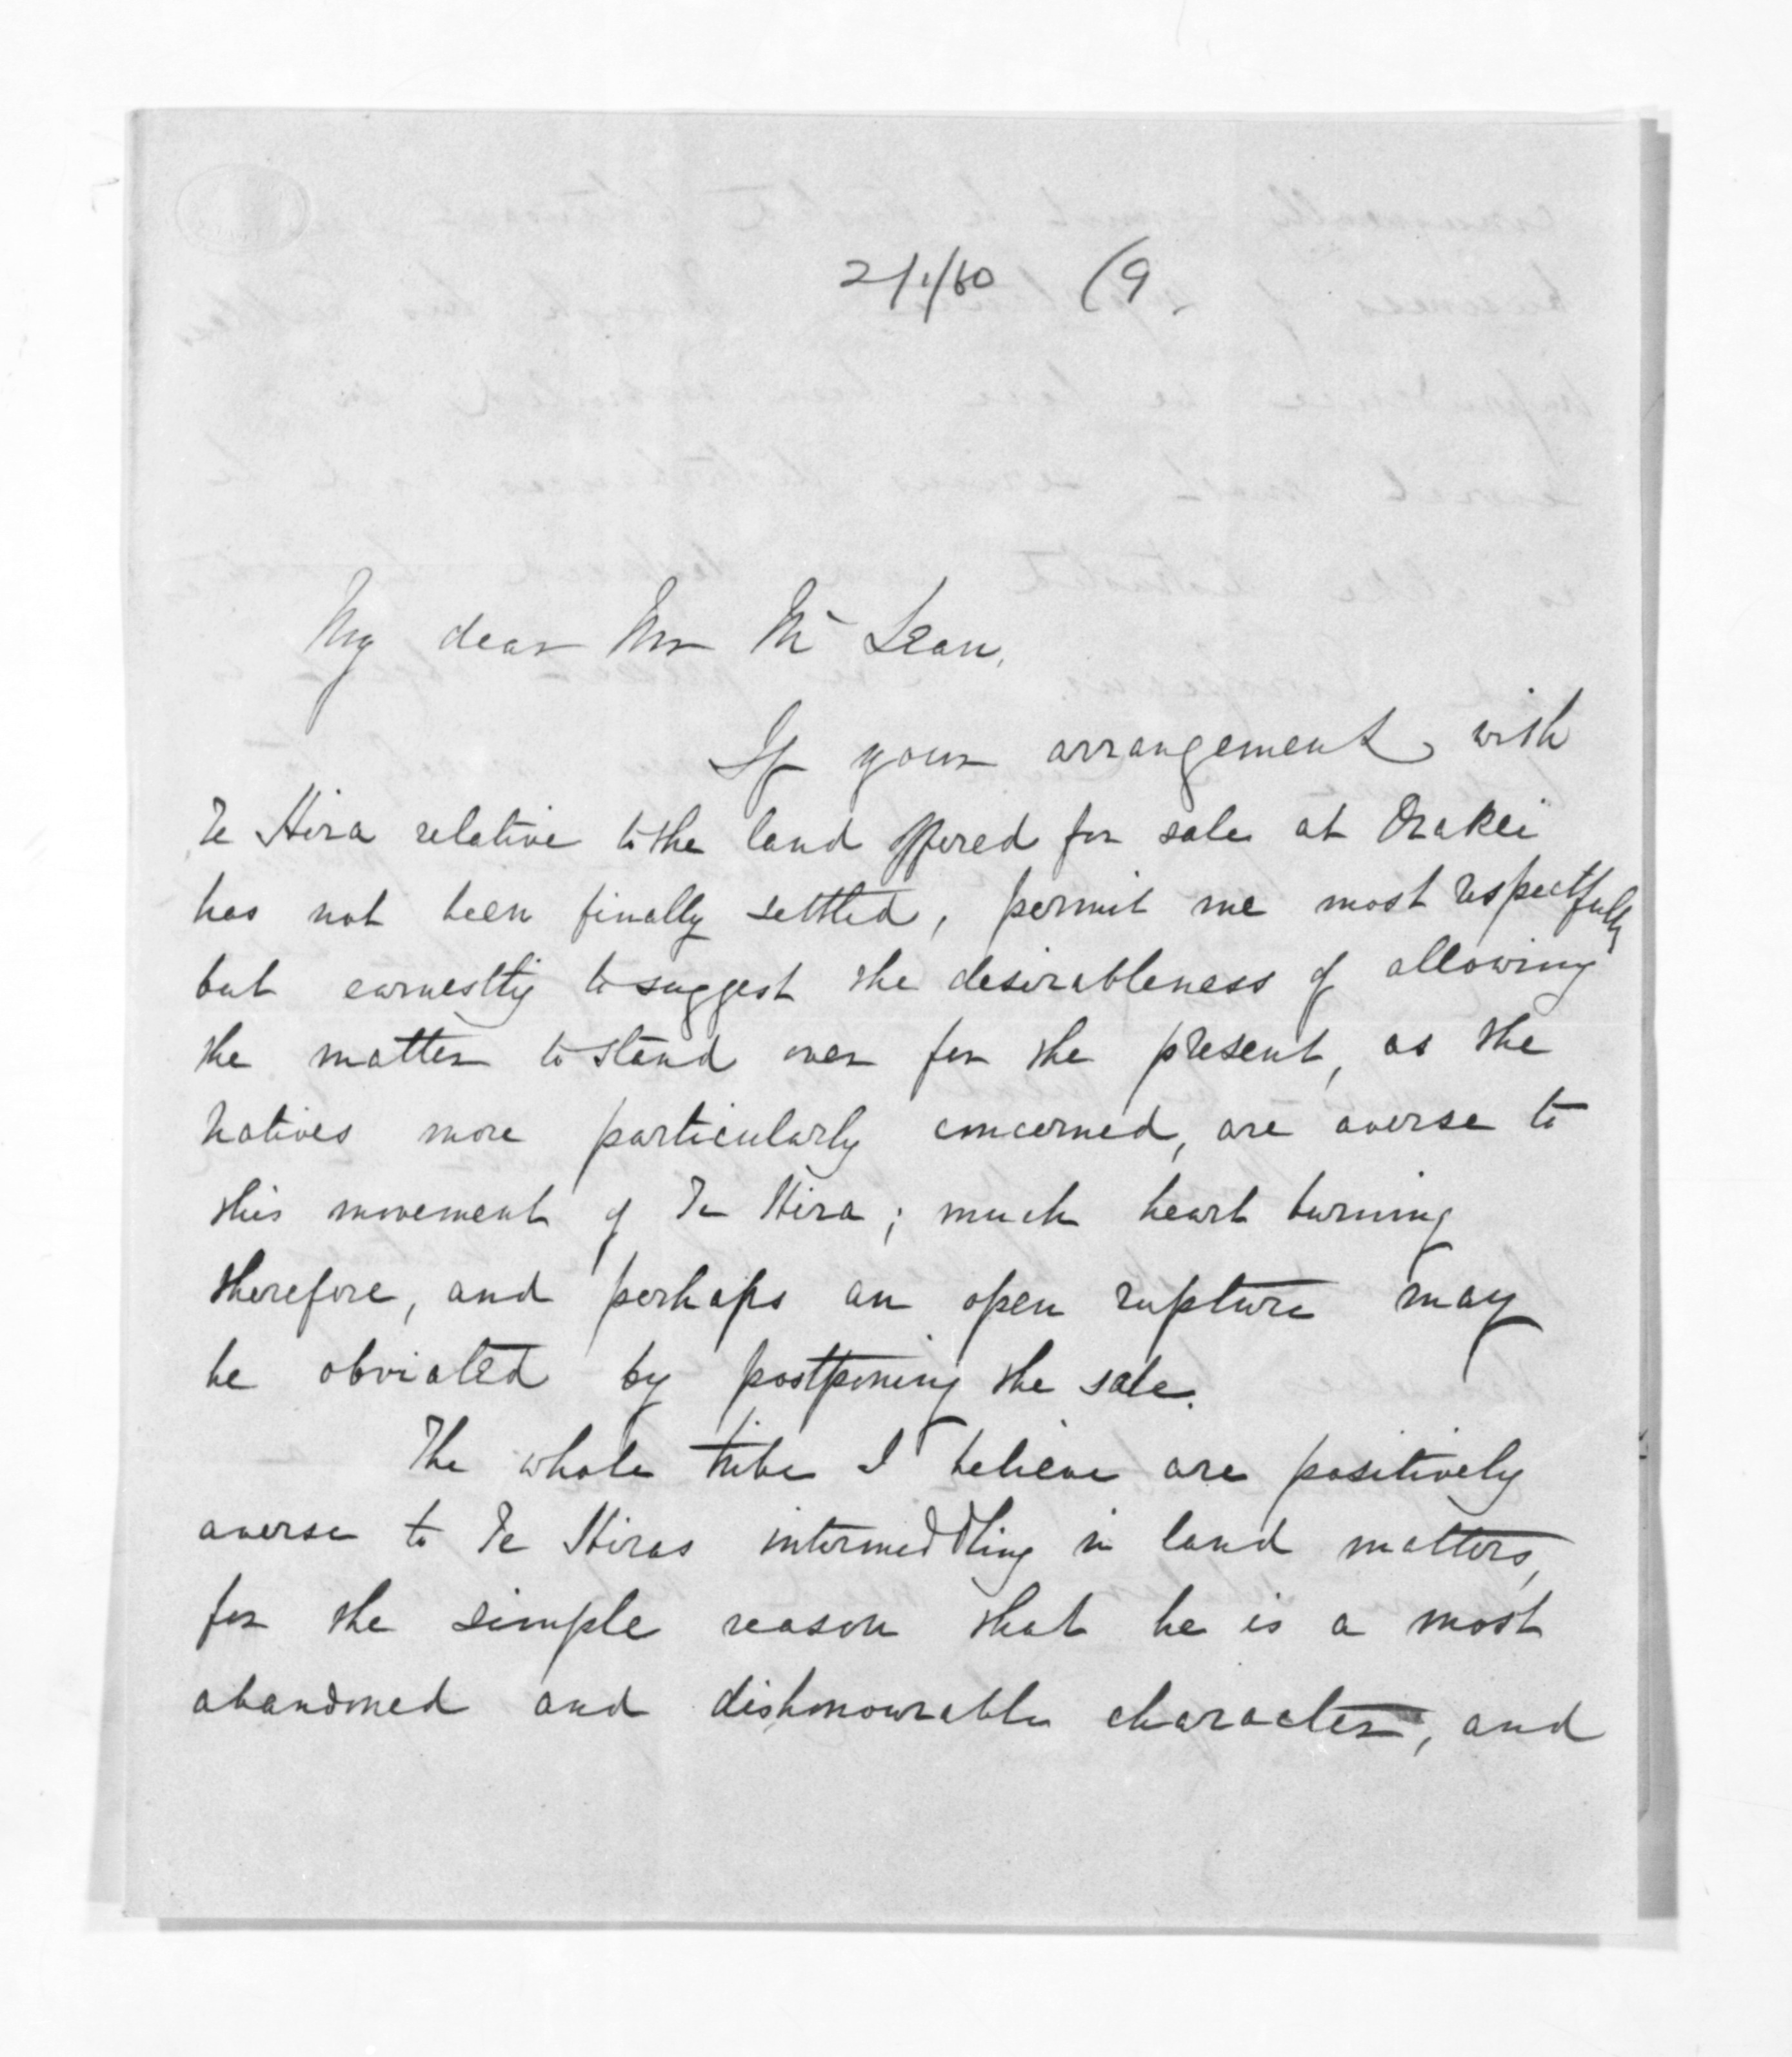 2/1/60 (9.
My dear Mr McLean,
If your arrangement with
Te Hira relative to the land offered for sale at Orakei
has not been finally settled, permit me most respectfully
but earnestly to suggest the desirableness of allowing
the matter to stand over for the present, as the
natives more particularly concerned, are averse to
this movement of Te Hira; much heart burning
therefore, and perhaps an open rupture may
be obviated by postponing the sale.
The whole tribe I believe are positively
averse to Te Hiras intermeddling in land matters,
for the simple reason that he is a most
abandoned and dishonourable character, and